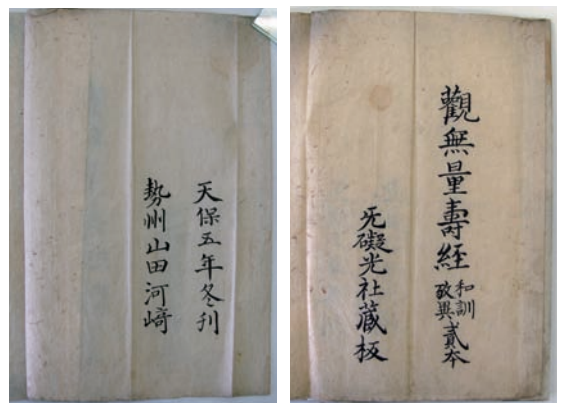 觀無量壽経 和訓 攷異 貳本
无礙光社蔵板
天保五年冬刊
勢州山田河﨑